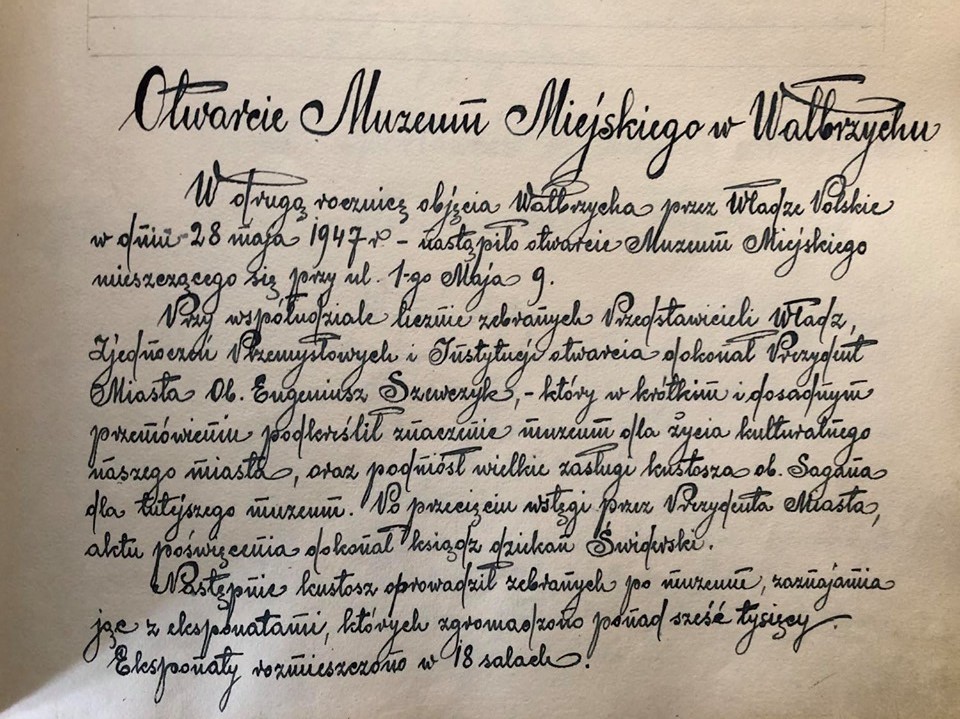 Otwarcie Muzeum Miejskiego w Wałbrzychu
W drugą rocznicę objęcia Wałbrzycha przez Władze Polskie
w dniu 28 maja 1947 r. - nastąpiło otwarcie Muzeum Miejskiego
mieszczącego się przy ul. 1-go Maja 9.
Przy współudziale licznie zebranych Przedstawicieli Władz,
Zjednoczeń Przemysłowych i Instytucji otwarcia dokonał Prezydent
Miasta Ob. Eugeniusz Szewczyk, - który w krótkim i dosadnym
przemówieniu podkreślił znaczenie muzeum dla życia kulturalnego
naszego miasta, oraz podniósł wielkie zasługi kustosza ob. Sagana
dla tutejszego muzeum. Po przecięciu wstęgi przez Prezydenta Miasta,
aktu poświęcenia dokonał ksiądz dziekan Świderski.
Następnie kustosz oprowadził zebranych po muzeum, zaznajamia
jąc z eksponatami, których zgromadzono ponad sześć tysięcy.
Eksponaty rozmieszczono w 18 salach.